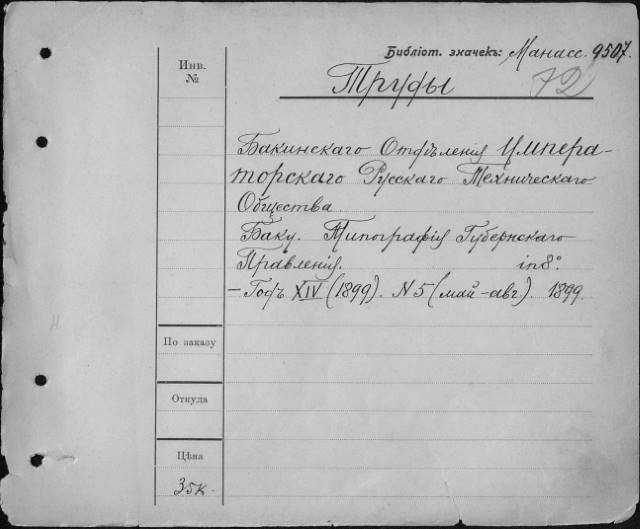 Библіот. значекъ: Манасс. 9507.
Инв.
№
Труды
Бакинскаго Отдѣленія Импера-
торскаго Русскаго Техническаго
Общества
Баку. Типографія Губернскаго
Правленія. in 8°.
— Годъ XIV (1899). N 5 (май-авг). 1899.
По заказу
Откуда
Цѣна
35к.